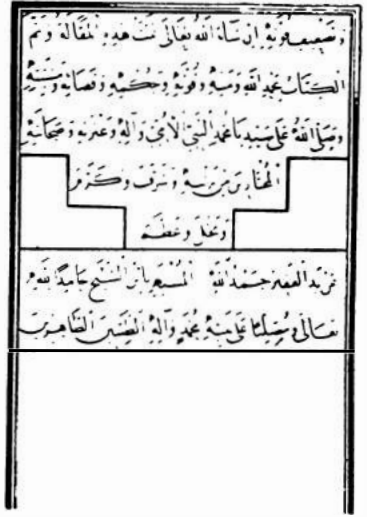 وتضعيف قوته ان شاء الله تعالى تمت هذه المقالة وتم
الكتاب بحمد الله ومنه وقوته وحكمته وقضائه ومشيته
وصلى الله على سيدنا محمد النبي الأمي وآله وعترته وصحابته
المختارين من بينه وشرف وكرم
وبجل وعظم
الفقير رحمة الله المشتهر بابن حامدا لله
تعالى ومصليا على نبيه محمد وآله الطيبين الطاهرين